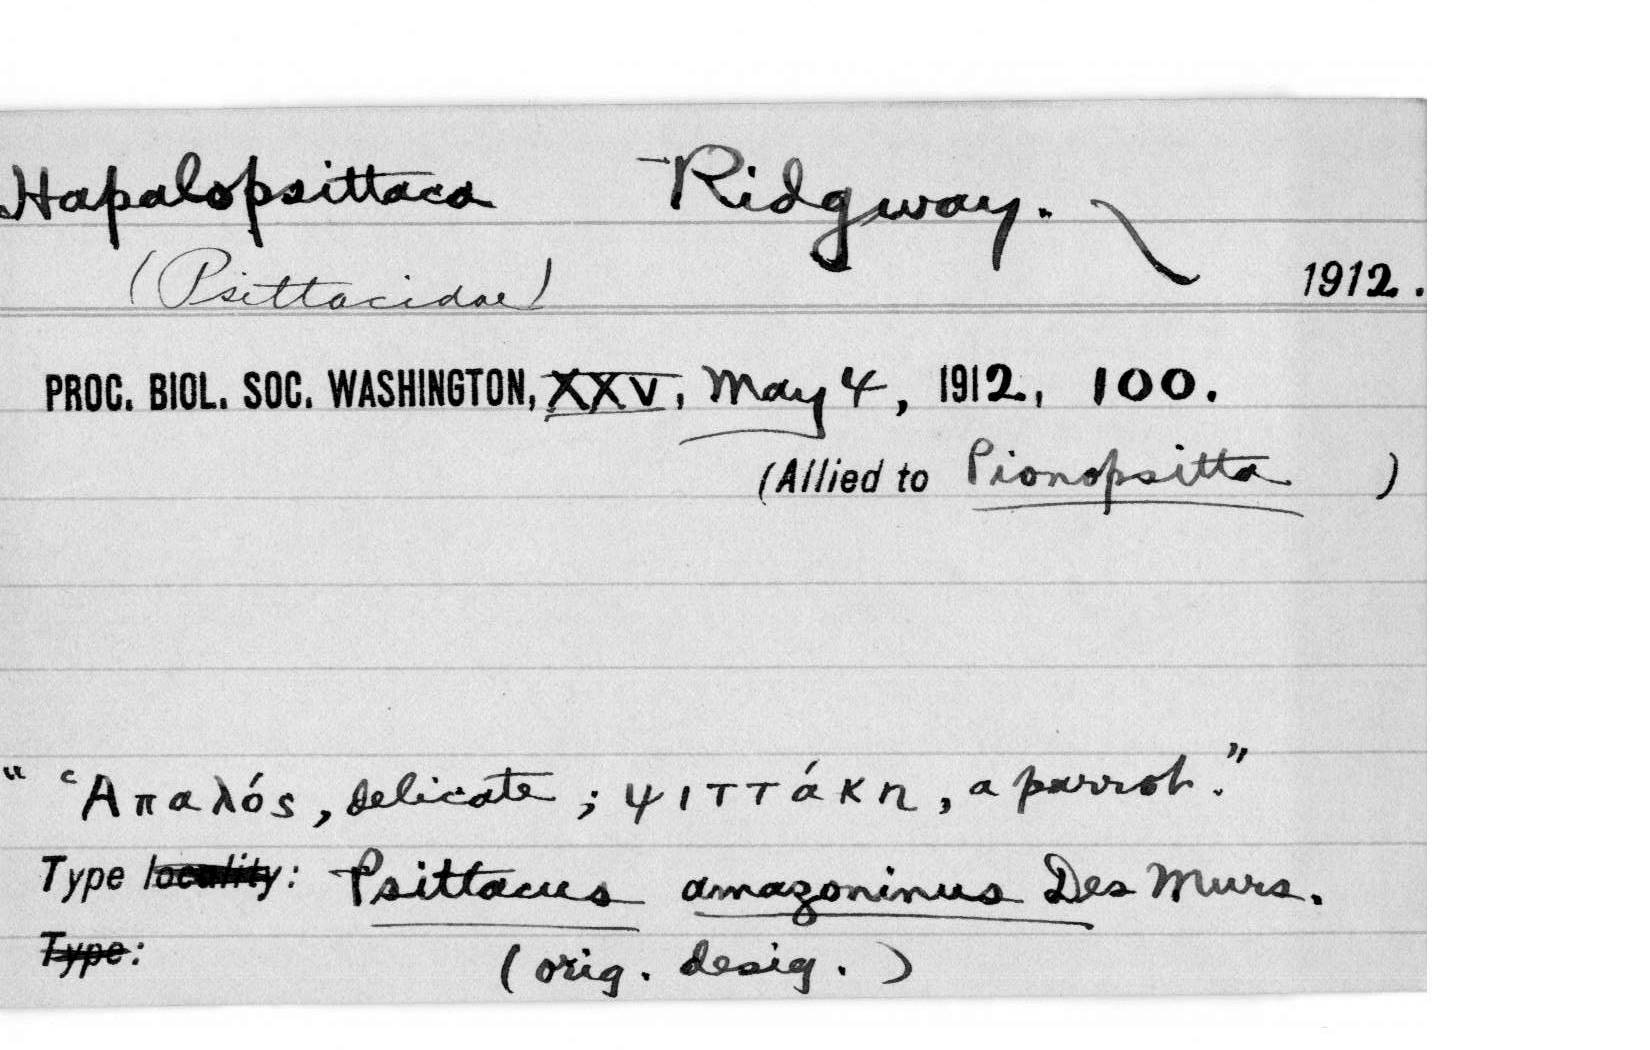 Hapalopsittaca Ridgway.
(Psittacidae) 1912.
PROC. BIOL. SOC. WASHINGTON, XXV, May 4, 1912, 100.
(Allied to Pionopsitta )
" Ἁπαλός, delicate ; ψιττάκη, a parrot."
Type locality: Psittacus amazoninus Des Murs.
Type: (orig. desig.)